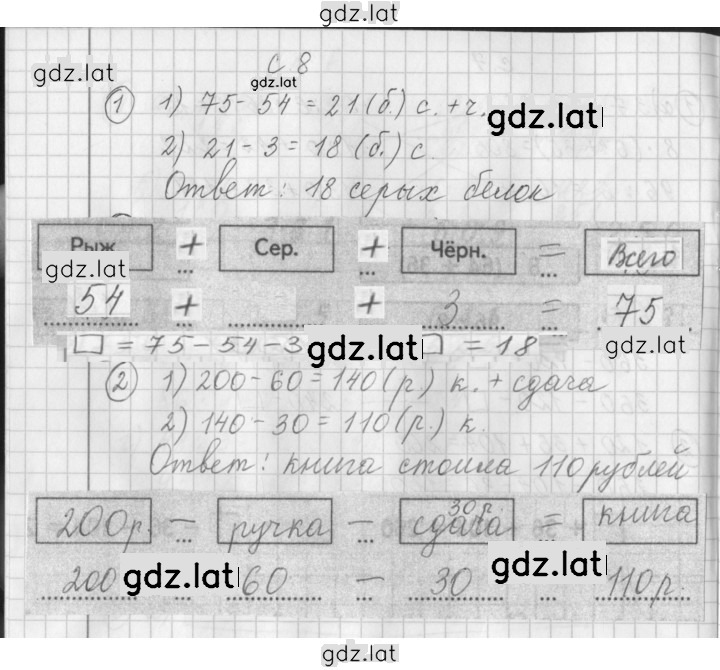 gdz.lat
с 8
gdz.lat
gdz.lat
1 1) 75 - 54 = 21 (б.) с. + ч.
gdz.lat
2) 21 - 3 = 18 (б.) с.
Ответ: 18 серых белок
Рыж. + Сер. + Чёрн. = Всего
gdz.lat
54 + + 3 = 75
□ = 75 - 54 - 3 □ = 18
gdz.lat
gdz.lat
2 1) 200 - 60 = 140 (р.) к. + сдача
2) 140 - 30 = 110 (р.) к.
Ответ: книга стоила 110 рублей
30 р.
200р. - ручка - сдача = книга
gdz.lat
gdz.lat
200 60 - 30 110р.
gdz.lat